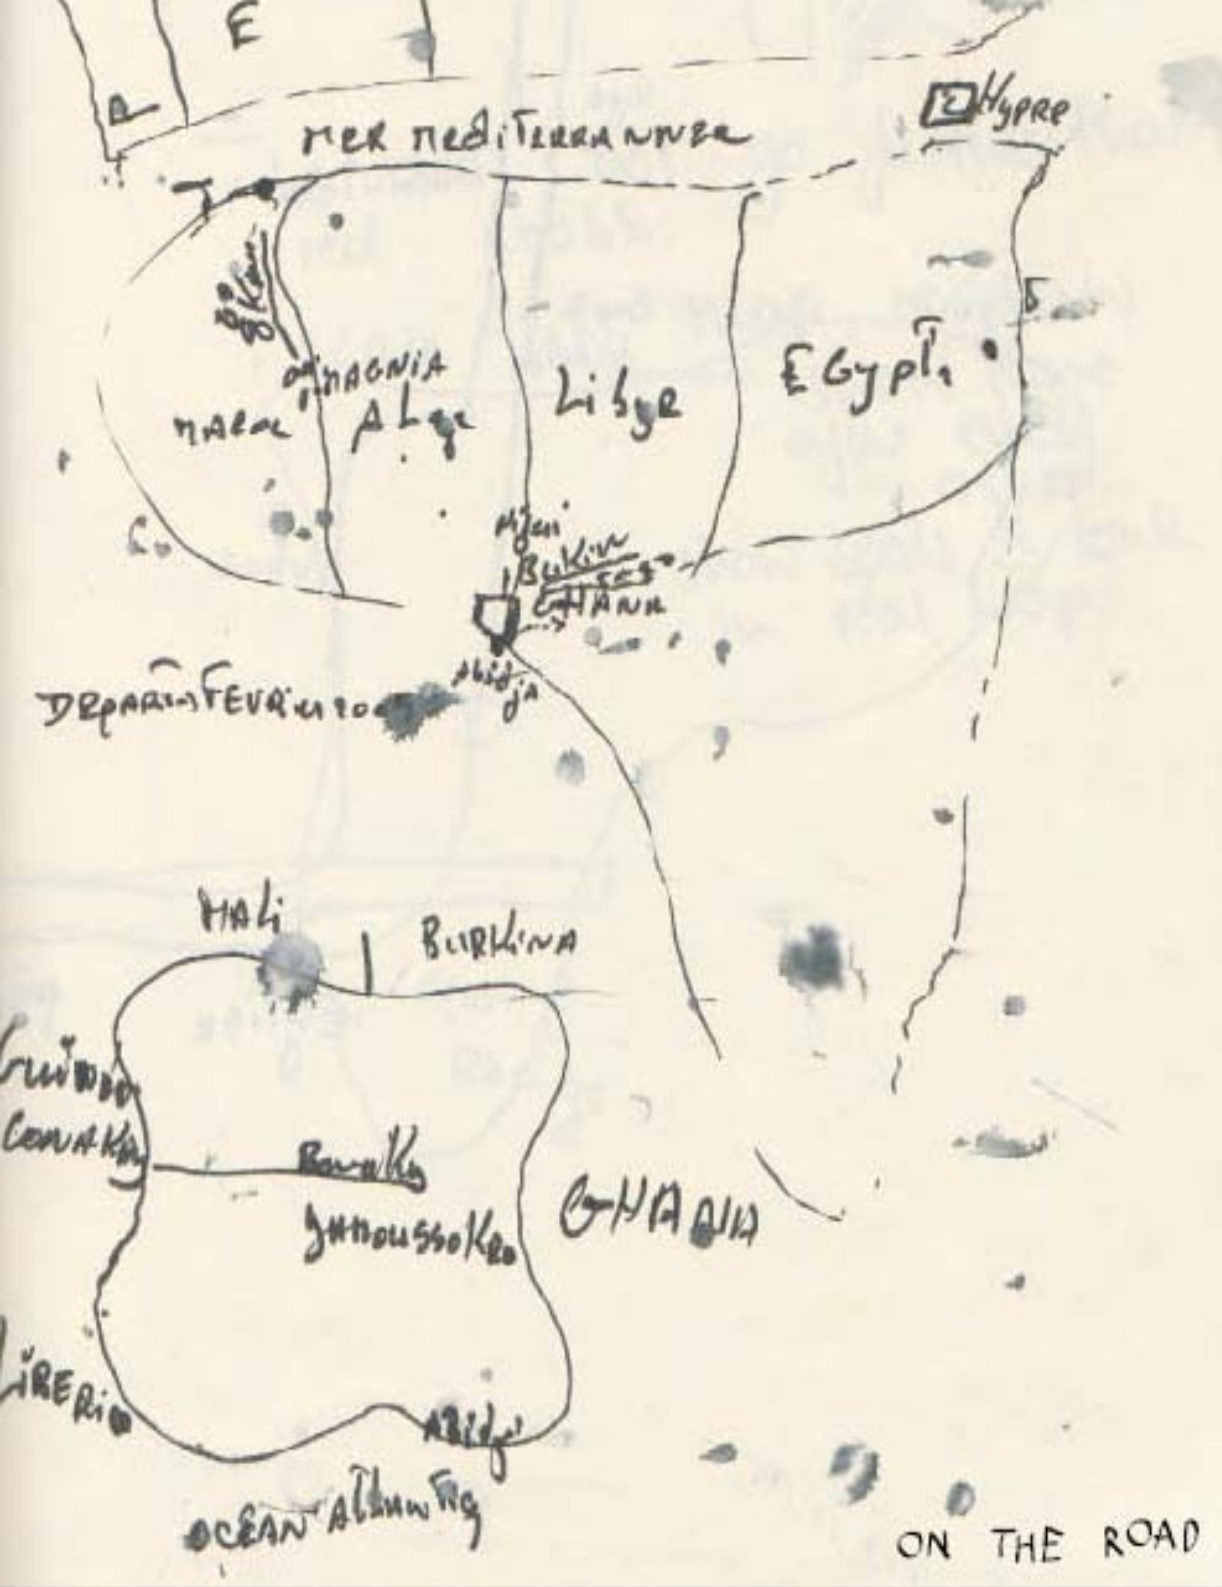 E
P
MER MEDITERRANNEE
MAGNIA
MAROC
ALge
LibyE
EGypTe
Burkina
GHANA
DEPART FEVRier
MALi
BURKiNA
GUiNEE
CONAKRy
BouaKe
yAMOUSSOKRO
GHANA
LiBERiA
ABidja
OCEAN ATLANTiq
ON THE ROAD